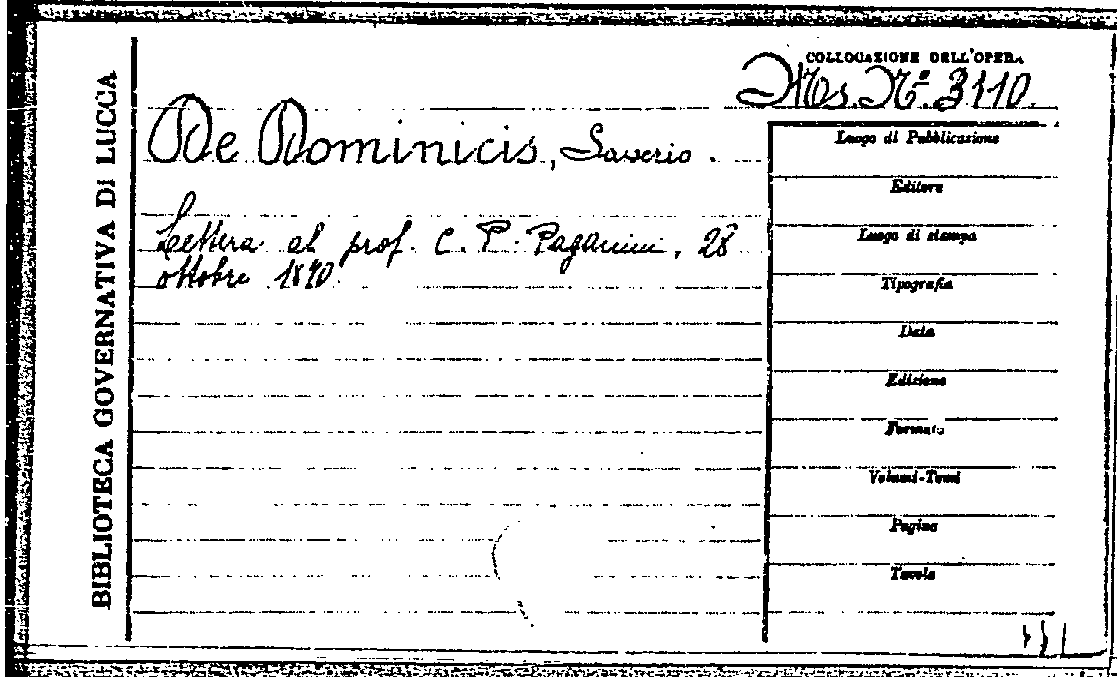 BIBLIOTECA GOVERNATIVA DI LUCCA
COLLOCAZIONE DELL'OPERA
Ms. Nº 3110.
De Dominicis, Saverio.
Lettera al prof. C. P. Paganini, 28
ottobre 1870.
Luogo di Pubblicazione
Editore
Luogo di stampa
Tipografia
Data
Edizione
Formato
Volumi-Tomi
Pagine
Tavole